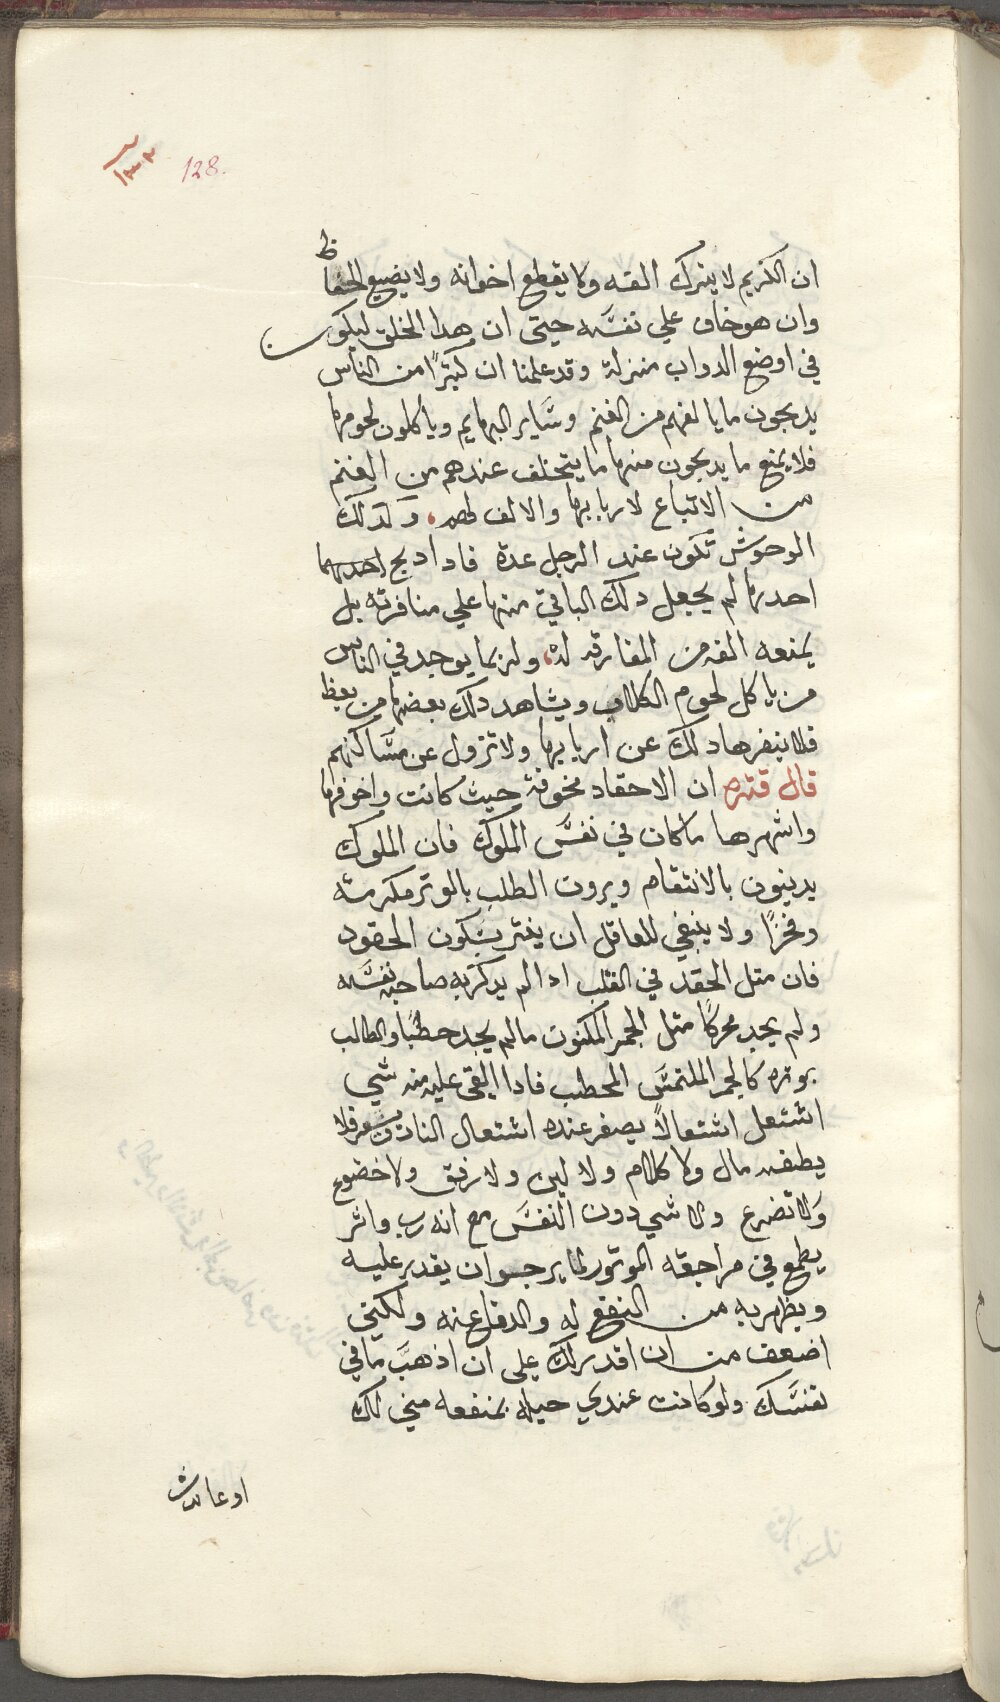 ١٣٣ 128.
ان الكريم لا يترك الفه ولا يقطع اخوانه ولا يضيع الحفاظ
وان هو خاف علي نفسه حيتى ان هدا الخلق ليكون
في اوضع الدواب منزلة وقد علمنا ان كثيرًا من الناس
يدبحون ما يالفهم من الغنم وساير البهايم وياكلون لحومها
فلا يمنع ما يدبحون منها ما يتخلف عندهم من الغنم
من الاتباع لاربابها والالف لهم، وكدلك
الوحوش تكون عند الرجل عدة فادا دبح احدهما
احدها لم يجعل دلك الباقي منها علي منافرته بل
يمنعه الفه من المفارقه له، ولربما يوجد في الناس
من ياكل لحوم الكلاب ويشاهد دلك بعضها من بعظ
فلا ينفرها دلك عن اربابها ولا تزول عن مساكنهم
قال قتره ان الاحقاد مخوفة حيث كانت واخوفها
واشهرها ما كان في نفس الملوك فان الملوك
يدينون بالانتقام ويرون الطلب بالوتر مكرمته
وفخرًا ولا ينبغي للعاقل ان يغتر بسكون الحقود
فان متل الحقد في القلب ادا لم يدكر به صاحبه نفسه
ولم يجد محركًا متل الجمر المكنون ما لم يجد حطبًا والطالب
بوتره كالجمر الملتمس الحطب فادا القي عليه منه شي
اشتعل اشتعالاً يصغر عنده اشتعال النار فلا
يطفه مال ولا كلام ولا لين ولا رفق ولا خضوع
ولا تضرع ولا شي دون النفس مع انه رب واتر
يطمع في مراجعه الموتور لما يرجوا ان يقدر عليه
ويظهر به من النفع له والدفاع عنه ولكني
اضعف من ان اقدر لك علي ان اذهب ما في
نفسك ولو كانت عندي حيله بمنفعه مني لك